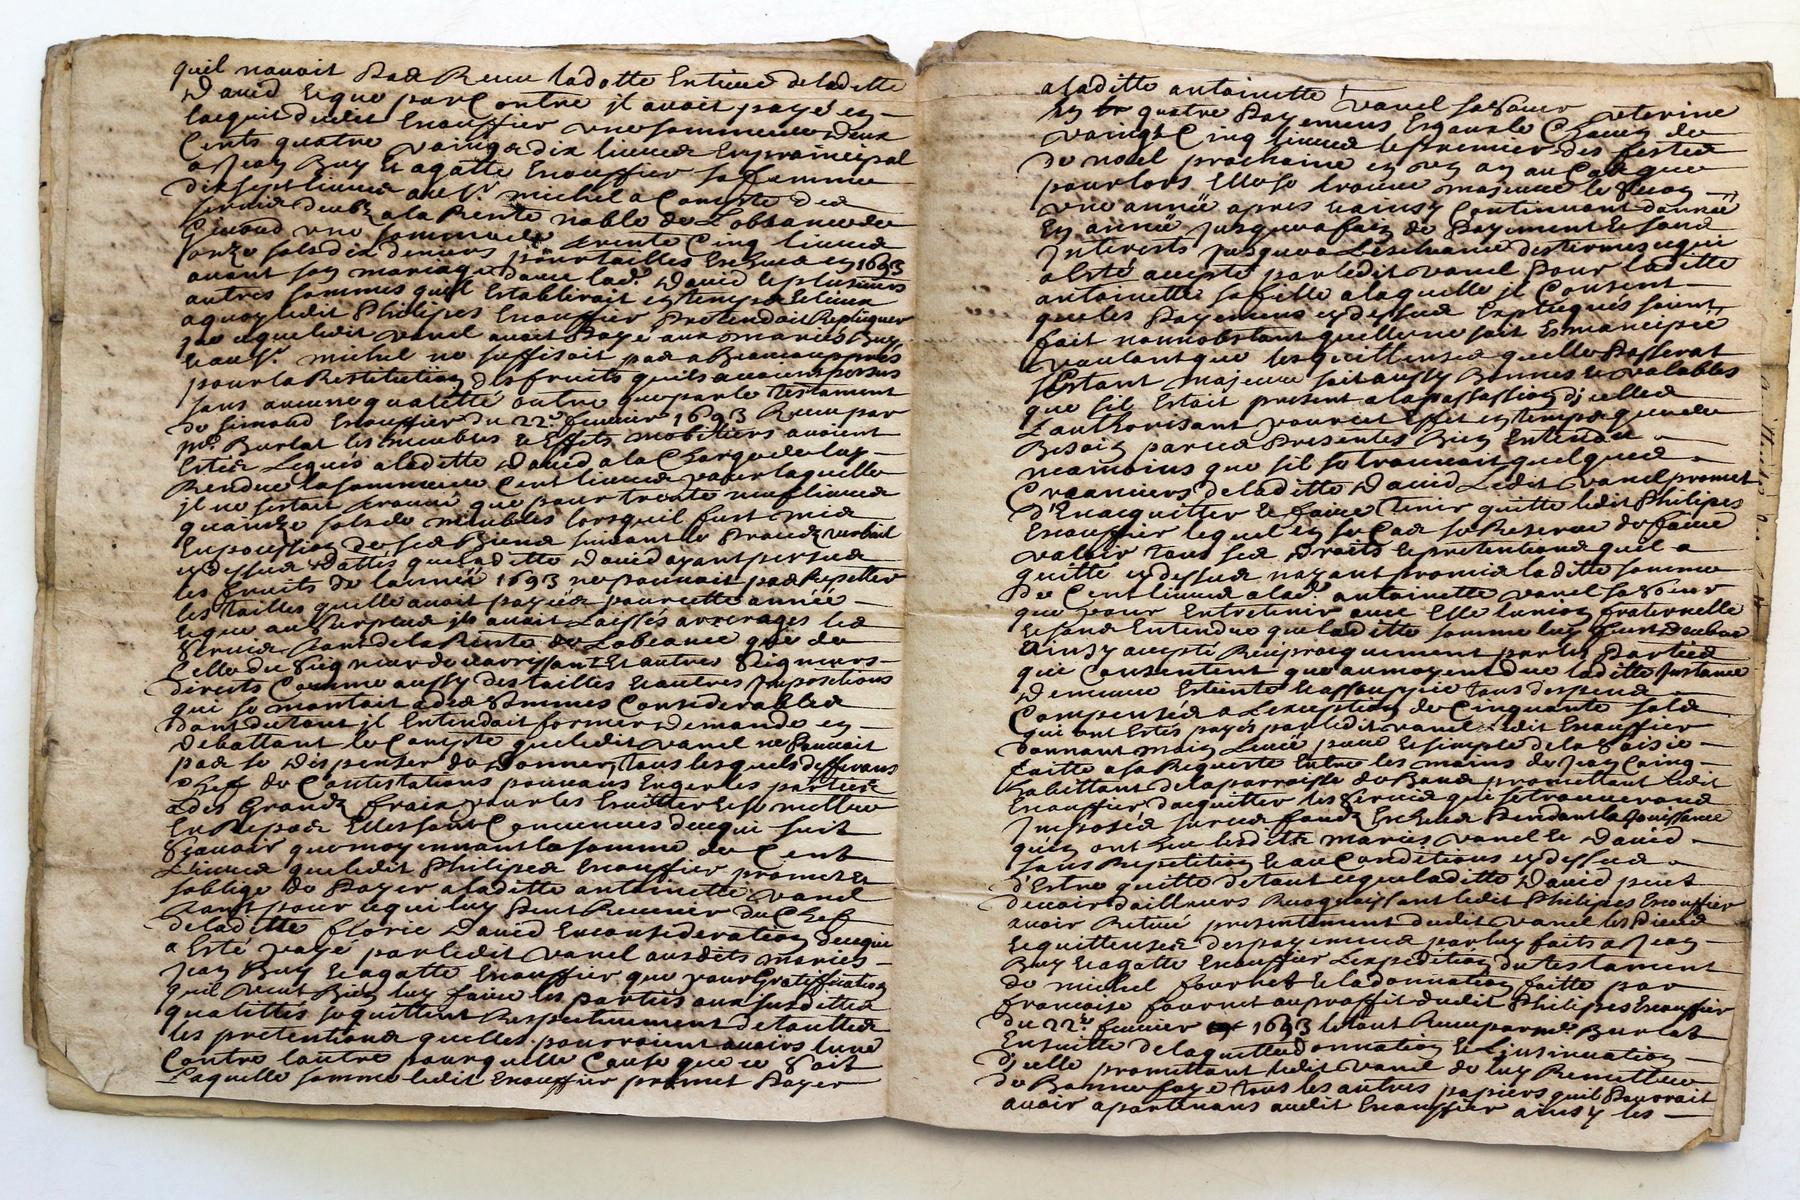 quil navoit pas Receu ladotte Entiere deladitte
David Eque par Contre jl avoit payé en
lacquit dudit Enouffier une somme de deux
Cents quatre vaingts dix livres En praincipal
a Jean Buy Et agatte Enouffier sa femme
dix sept livres au Sr michel a Compte des
servis deubz a la Rente noble de
une somme de trente Cinq livres
onze sols dix deniers pour tailles Escheues en 1693
avant son mariage avec lade David Et plusieurs
autres sommes quil Establiroit en temps Et lieux
a quoy ledit Philipes Enouffier pretendait Repliquer
que ce que ledit vanel avoit payé aux mariés Buy
Et au Sr michel ne suffisoit pas a Beaucoup pres
pour la Restitution des fruits quils avoient perseus
sans aucune qualitté outre que par le testament
de simond Enouffier du 22e fevrier 1693 Receu par
me Burlat les meubles & Effets mobiliers avoient
Estés Legués a laditte David a la Charge de luy
Rendre la somme de Cent livres pour laquelle
jl ne sertoit trouvé que pour trente neuf livres
quainze sols de meubles lorsquil fust mis
En possession de ses Biens suivant le Procez verbail
cy dessus datté que laditte David ayant perseus
les fruits de lannée 1693 ne pouvoit pas Repetter
les tailles quelle avoit payées pour cette année
Eque au surplus jls avoit Laissés arrerages les
servis tant de la Rente de que de
Celle du Seigneur de Et autres Seigneurs
directs Comme aussy des tailles Et autres Impositions
qui se montait a des sommes Considerables
dont du tout jl Entendait former Demande en
Debattant le Compte que ledit vanel ne pouvoit
pas se dispenser de donner, tous lesquels differans
Chefs de Contestations pouvans Engager les parties
a des Grands fraix pour les Eviter Et se mettre
En Repos Elles sont Convenues de ce qui suit
Scavoir que moyennant la somme de Cent
Livres que ledit Philipes Enouffier promet Et
soblige de payer a laditte antoinette vanel
tant pour ce qui luy peut Revenir du Chef
de laditte floric David En consideration de ce qui
a Esté payé par ledit vanel ausdits mariés
Jean Buy Et agatte Enouffier que pour Gratiffication
quil veut Bien luy faire les parties aux susdittes
qualittés se quittent Respectivement de touttes
les pretentions quelles pouroient avoirs lune
Contre lautre pour quelle Cause que ce soit
Laquelle somme ledit Enouffier promet payer
a laditte antoinette vanel sa soeur uterine
En quatre payemens Egaux de Chacun de
vaingt Cinq livres le premier des festes
de noel prochaine en un an au Cas que
pour lors Elle se trouve majeure le second
une année apres Et ainsy Continuant dannée
En année jusques a fin de payement Et sans
Interests jusques a Lescheance des termes ce qui
a Esté accepté par ledit vanel pour laditte
antoinette sa fille a laquelle jl Consent
que les payemens cy dessus Expliqués soient
fait nonnobstant quelle ne soit Emancipée
voulant que les quittences quelle passerat
Estant majeure soit aussy Bonnes Et valables
que sil Estait present a la passassion djcelles
Lauthorisant pour cet Effet en temps que de
Besoin par ces presentes Bien Entendu
neamoins que sil se trouvait quelques
Creanciers de laditte David Ledit vanel promet
dEn acquitter Et faire tenir quitte ledit Philipes
Enouffier lequel en ce Cas se Reserve de faire
valoir tous ses droits Et pretentions quil a
quitté cy dessus nayant promis laditte somme
de Cent livres a lade antoinette vanel sa soeur
que pour Entretenir avec Elle lunion fraternelle
Et sans Entendre que laditte somme luy feust deube
Ainsy accepté Reciproquement par les parties
qui Consentent que au moyent de ce laditte Instance
Demeure Esteinte Et assouppie tous despens
Compensés a Lexception de Cinquante sols
qui ont Estés payés par ledit vanel ledit Enouffier
donnant main Levée pure Et simple de la saisie
faitte a sa Requeste Entre les mains de Jean
habittant de la parroisse de promettant ledit
Enouffier dacquitter les servis qui se trouverons
Imposés sur ces fonds Escheus pendant la jouissance
quen ont heu lesdits mariés vanel Et David
sans Repetition Et au Conditions cy dessus
dEstre quitte de tout ce que laditte David peut
devoir dailleurs Reconnaissant ledit Philipes Enouffier
avoir Retiré presentement dudit vanel les pieces
Et quittences des payemens par luy faits a Jean
Buy Et agatte Enouffier Lexpedition du testament
de michel fournet Et la donnation faitte par
francoise fournet au proffit dudit Philipes Enouffier
du 22e fevrier 1693 le tout Receu par me Burlat
Ensuitte de laquelle donnation Et Linsinuation
djcelle promettant ledit vanel de luy Remettre
de Bonne foye tous les autres papiers quil pouvroit
avoir apartenans audit Enouffier ainsy les